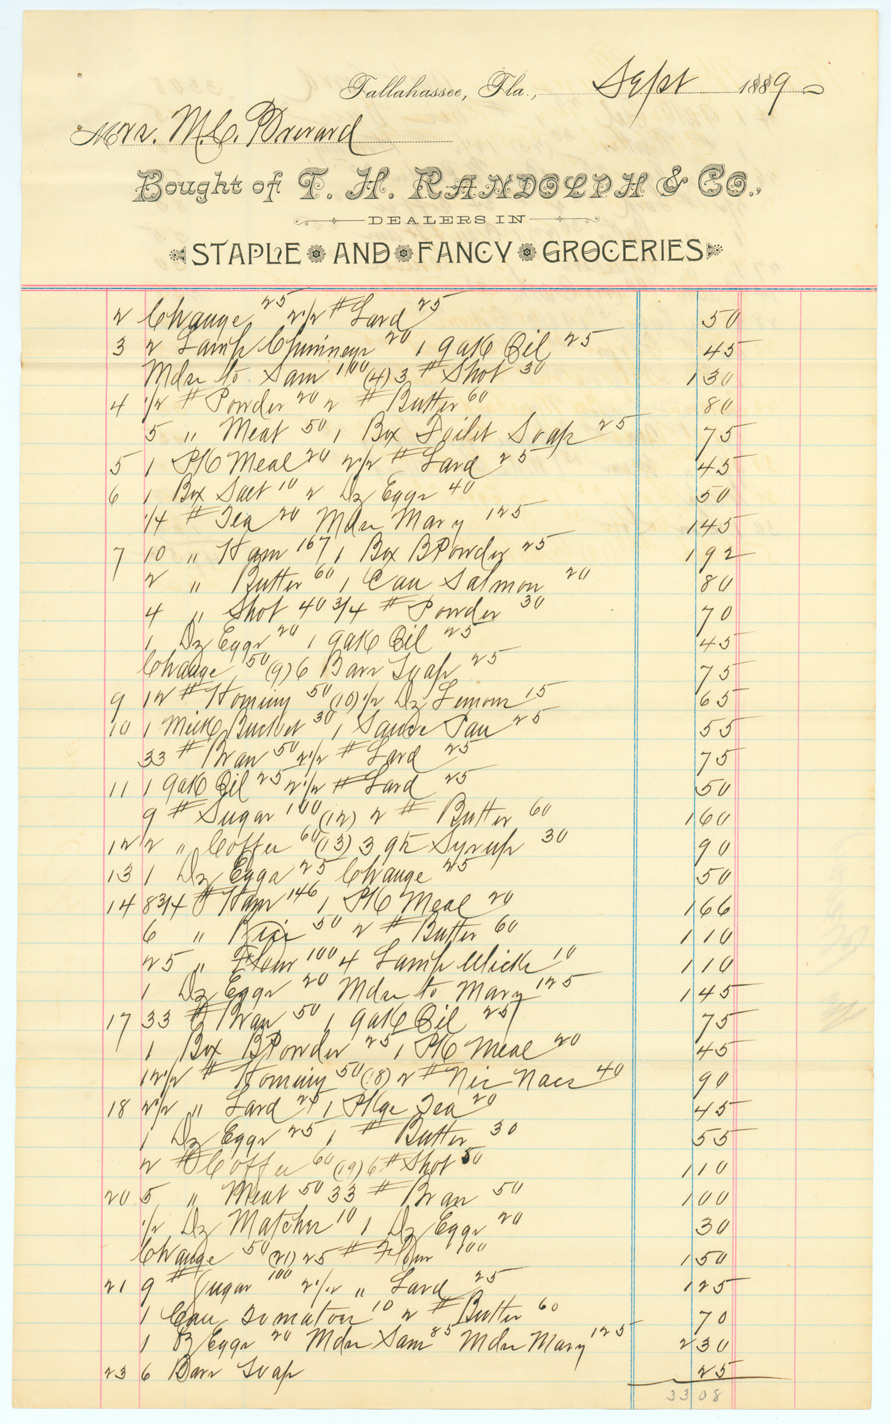 Tallahassee, Fla., Sept 1889
Mrs. M. C. Brevard
Bought of T. H. RANDOLPH & CO.,
DEALERS IN
STAPLE AND FANCY GROCERIES
2 Change 25 2 1/2 # Lard 25 50
3 2 Lamp Chimneys 20 1 gal Oil 25 45
Mdse to Sam 100 (4) 3 # Shot 30 130
4 1/2 # Powder 20 2 # Butter 60 80
5 " Meat 50 1 Box Toilet Soap 25 75
5 1 PK Meal 20 2 1/2 # Lard 25 45
6 1 Box Salt 10 2 Dz Eggs 40 50
1/4 # Tea 20 Mdse Mary 125 145
7 10 " Ham 167 1 Box BPowder 25 192
2 " Butter 60 1 Can Salmon 20 80
4 " Shot 40 3/4 # Powder 30 70
1 Dz Eggs 20 1 gal Oil 25 45
Change 50 (9) 6 Bars Soap 25 75
9 12 # Hominy 50 (10) 1/2 Dz Lemons 15 65
10 1 Milk Bucket 30 1 Sauce Pan 25 55
33 # Bran 50 2 1/2 # Lard 25 75
11 1 gal Oil 25 2 1/2 # Lard 25 50
9 # Sugar 100 (12) 2 # Butter 60 160
12 2 " Coffee 60 (13) 3 qts Syrup 30 90
13 1 Dz Eggs 25 Change 25 50
14 8 3/4 # Ham 146 1 PK Meal 20 166
6 " Rice 50 2 # Butter 60 110
25 " Flour 100 4 Lamp Wicks 10 110
1 Dz Eggs 20 Mdse to Mary 125 145
17 33 # Bran 50 1 gal Oil 25 75
1 Box BPowder 25 1 PK Meal 20 45
12 1/2 # Hominy 50 (18) 2 # Nic Nacs 40 90
18 2 1/2 " Lard 25 1 Pkge Tea 20 45
1 Dz Eggs 25 1 # Butter 30 55
2 # Coffee 60 (19) 6 # Shot 50 110
20 5 " Meat 50 33 # Bran 50 100
1/2 Dz Matches 10 1 Dz Eggs 20 30
Change 50 (21) 25 # Flour 100 150
21 9 # Sugar 100 2 1/2 " Lard 25 125
1 Can Tomatoes 10 2 # Butter 60 70
1 Dz Eggs 20 Mdse Sam 85 Mdse Mary 125 230
23 6 Bars Soap 25
3308